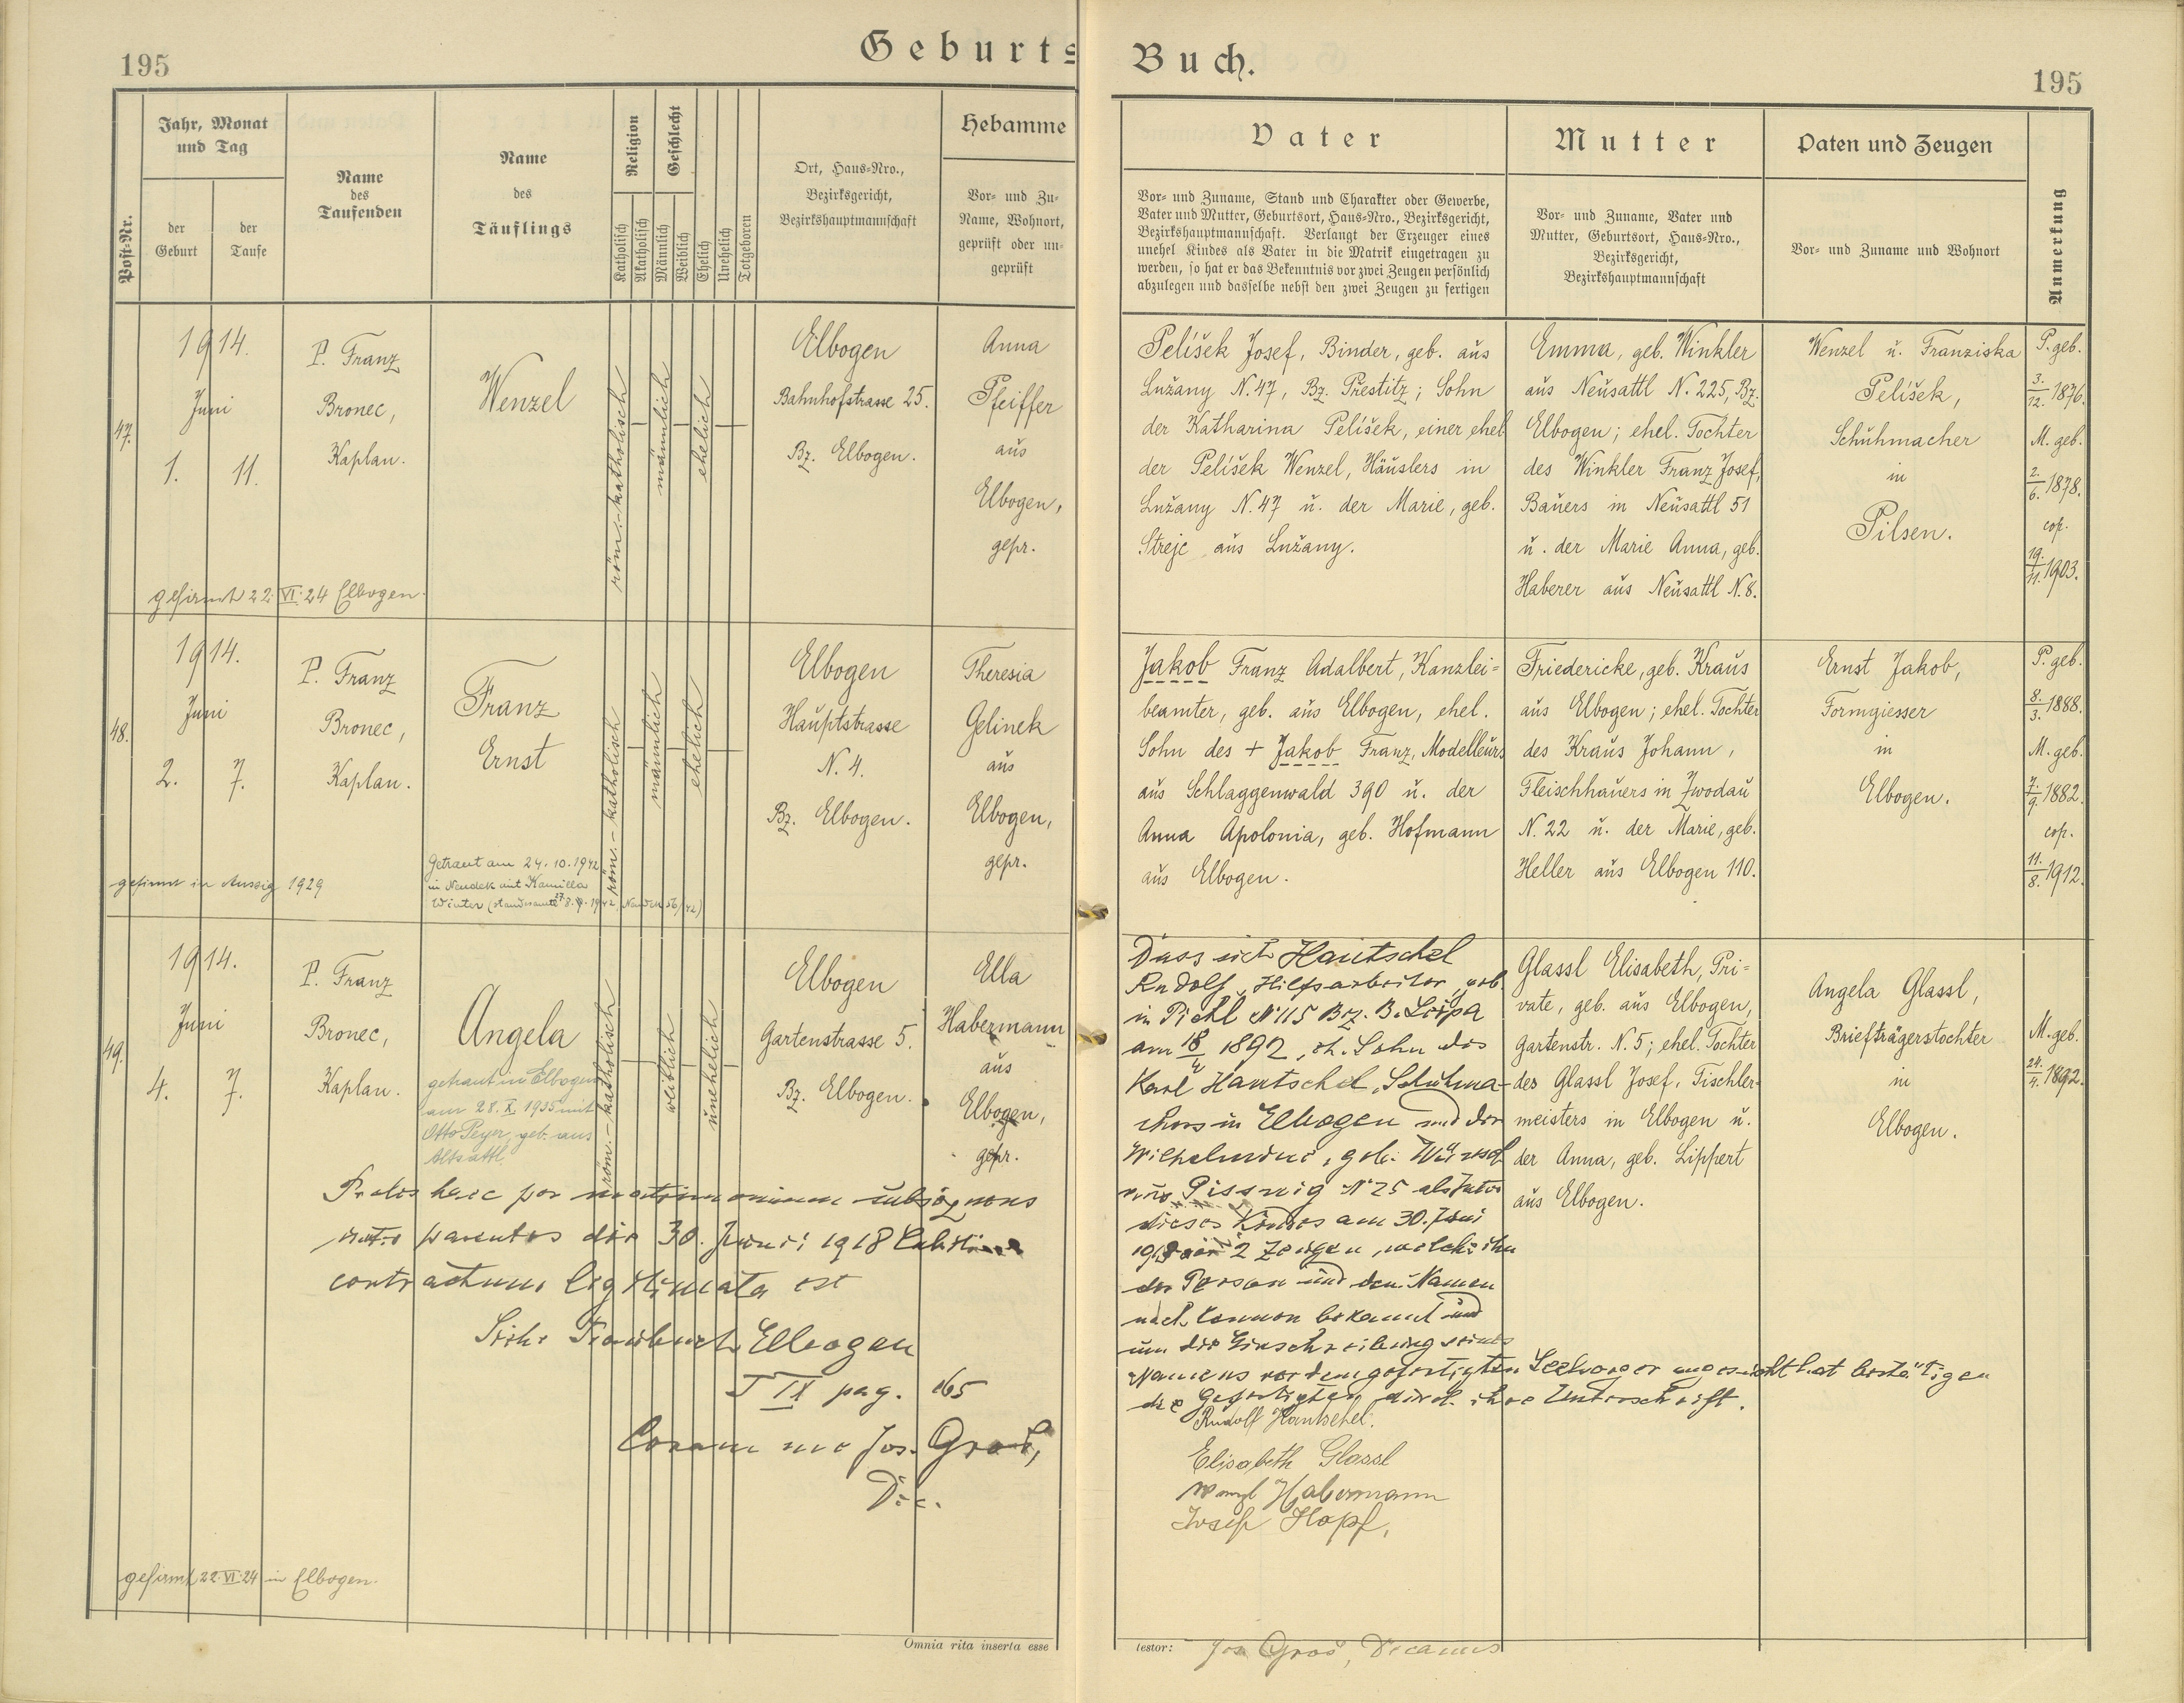 195
Geburts
Buch.
195
Post-Nr.
Jahr, Monat
und Tag
der
Geburt
der
Taufe
Name
des
Taufenden
Name
des
Täuflings
Religion
Katholisch
Akatholisch
Geschlecht
Männlich
Weiblich
Ehelich
Unehelich
Totgeboren
Ort, Haus-Nro.,
Bezirksgericht,
Bezirkshauptmannschaft
Hebamme
Vor- und Zu-
Name, Wohnort,
geprüft oder un-
geprüft
Vater
Vor- und Zuname, Stand und Charakter oder Gewerbe,
Vater und Mutter, Geburtsort, Haus-Nro., Bezirksgericht,
Bezirkshauptmannschaft. Verlangt der Erzeuger eines
unehel Kindes als Vater in die Matrik eingetragen zu
werden, so hat er das Bekenntnis vor zwei Zeugen persönlich
abzulegen und dasselbe nebst den zwei Zeugen zu fertigen
Mutter
Vor- und Zuname, Vater und
Mutter, Geburtsort, Haus-Nro.,
Bezirksgericht,
Bezirkshauptmannschaft
Paten und Zeugen
Vor- und Zuname und Wohnort
Anmerkung
47.
1914.
Juni
1. 11.
P. Franz
Bronec,
Kaplan.
Wenzel
röm.-katholisch
männlich
ehelich
Elbogen
Bahnhofstrasse 25.
Bz. Elbogen.
Anna
Pfeiffer
aus
Elbogen,
gepr.
gefirmt 22. VI. 24 Elbogen.
Pelíšek Josef, Binder, geb. aus
Lužany N. 47, Bz. Přestitz; Sohn
der Katharina Pelíšek, einer ehel
der Pelíšek Wenzel, Häuslers in
Lužany N. 47 u. der Marie, geb.
Strejc aus Lužany.
Emma, geb. Winkler
aus Neusattl N. 225, Bz.
Elbogen; ehel. Tochter
des Winkler Franz Josef,
Bauers in Neusattl 51
u. der Marie Anna, geb.
Haberer aus Neusattl N. 8.
Wenzel u. Franziska
Pelíšek,
Schuhmacher
in
Pilsen.
P. geb.
3./12. 1876.
M. geb.
2./6. 1878.
cop.
19./11. 1903.
48.
1914.
Juni
2. 7.
P. Franz
Bronec,
Kaplan.
Franz
Ernst
röm.-katholisch
männlich
ehelich
Elbogen
Hauptstrasse
N. 4.
Bz. Elbogen.
Theresia
Gelinek
aus
Elbogen,
gepr.
Getraut am 24.10.1942
in Neudek mit Kamilla
Winter
gefirmt in Aussig 1929
Jakob Franz Adalbert, Kanzlei=
beamter, geb. aus Elbogen, ehel.
Sohn des + Jakob Franz, Modelleurs
aus Schlaggenwald 390 u. der
Anna Apolonia, geb. Hofmann
aus Elbogen.
Friedericke, geb. Kraus
aus Elbogen; ehel. Tochter
des Kraus Johann,
Fleischhauers in Zwodau
N. 22 u. der Marie, geb.
Heller aus Elbogen 110.
Ernst Jakob,
Formgiesser
in
Elbogen.
P. geb.
8./3. 1888.
M. geb.
7./9. 1882.
cop.
11./8. 1912.
49.
1914.
Juni
4. 7.
P. Franz
Bronec,
Kaplan.
Angela
getraut in Elbogen
am 28. X. 1935 mit
Otto Peyer, geb. aus
Altsattl
röm.-katholisch
weiblich
unehelich
Elbogen
Gartenstrasse 5.
Bz. Elbogen.
Ella
Habermann
aus
Elbogen,
gepr.
Proles haec per matrimonium subsequens
inter parentes die 30. Juni 1918
contractum legitimata est
Siehe Traubuch Elbogen
T IX pag. 165
Coram me Jos. Groš,
Dec.
gefirmt 22. VI. 24 in Elbogen.
Dass sich Hantschel
Rudolf, Hilfsarbeiter, geb.
in Pichl N 115 Bz. B. Leipa
am 18/4 1892, eh. Sohn des
Karl Hantschel, Schuhma-
chers in Elbogen und der
Wilhelmine, geb. Würsch
aus Pissnig N 25 als Vater
dieses Kindes am 30. Juni
1918 vor 2 Zeugen, welche ihn
der Person und dem Namen
nach kennen bekannt und
um die Einschreibung seines
Namens vor dem gefertigten Seelsorger angesucht hat bestätigen
die Gefertigten durch ihre Unterschrift.
Rudolf Hantschel.
Elisabeth Glassl
Wenzl Habermann
Josef Hopf,
Glassl Elisabeth, Pri=
vate, geb. aus Elbogen,
Gartenstr. N. 5; ehel. Tochter
des Glassl Josef, Tischler-
meisters in Elbogen u.
der Anna, geb. Lippert
aus Elbogen.
Angela Glassl,
Briefträgerstochter
in
Elbogen.
M. geb.
24./4. 1892.
Omnia rita inserta esse
testor: Jos Groš, Decanus